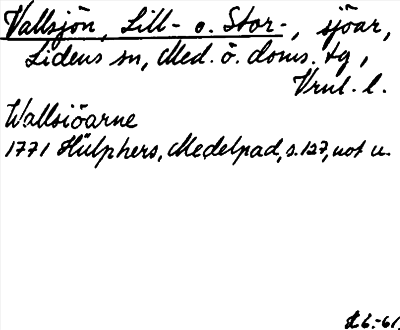 Vallsjön, Lill- o. Stor-, sjöar,
Lidens sn, Med. ö. doms. tg,
Vnrl. l.
Wallsiöarne
1771 Hülphers, Medelpad, s. 127, not u.